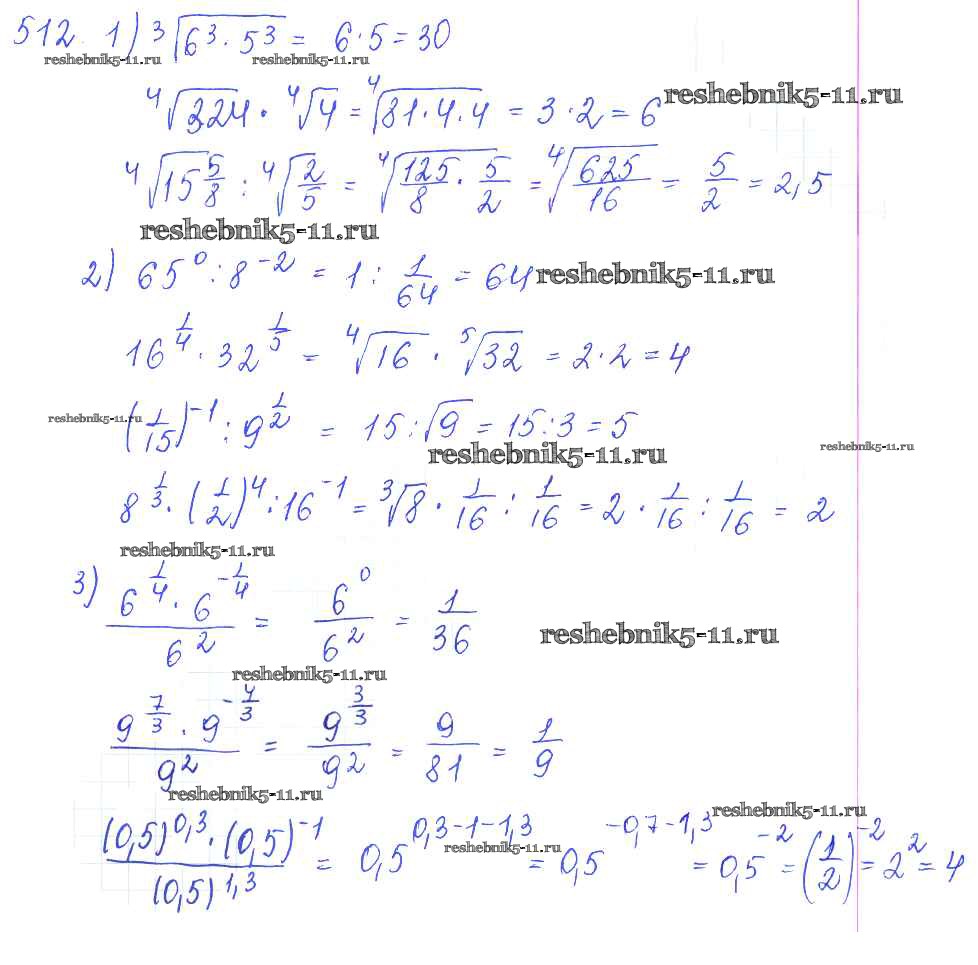 512. 1) ∛(6³·5³) = 6·5 = 30
reshebnik5-11.ru reshebnik5-11.ru
⁴√324 · ⁴√4 = ⁴√(81·4·4) = 3·2 = 6 reshebnik5-11.ru
⁴√(15 5/8) : ⁴√(2/5) = ⁴√(125/8 · 5/2) = ⁴√(625/16) = 5/2 = 2,5
reshebnik5-11.ru
2) 65⁰ : 8⁻² = 1 : 1/64 = 64 reshebnik5-11.ru
16^(1/4) · 32^(1/5) = ⁴√16 · ⁵√32 = 2·2 = 4
reshebnik5-11.ru (1/15)⁻¹ : 9^(1/2) = 15 : √9 = 15 : 3 = 5
reshebnik5-11.ru reshebnik5-11.ru
8^(1/3) · (1/2)⁴ : 16⁻¹ = ∛8 · 1/16 : 1/16 = 2 · 1/16 : 1/16 = 2
reshebnik5-11.ru
3) (6^(1/4) · 6^(-1/4))/6² = 6⁰/6² = 1/36 reshebnik5-11.ru
reshebnik5-11.ru
(9^(7/3) · 9^(-4/3))/9² = 9^(3/3)/9² = 9/81 = 1/9
reshebnik5-11.ru reshebnik5-11.ru
((0,5)^0,3 · (0,5)⁻¹)/(0,5)^1,3 = 0,5^(0,3-1-1,3) = 0,5^(-0,7-1,3) = 0,5⁻² = (1/2)⁻² = 2² = 4
reshebnik5-11.ru